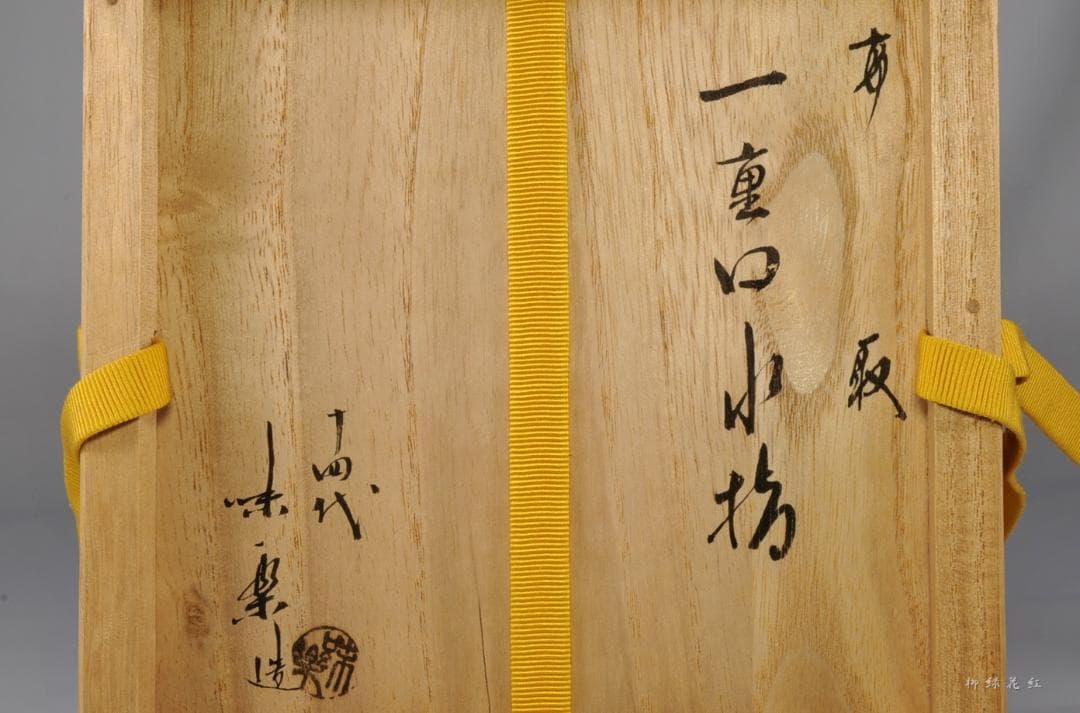 高取
一重口水指
十四代
味楽造
柳緑花紅